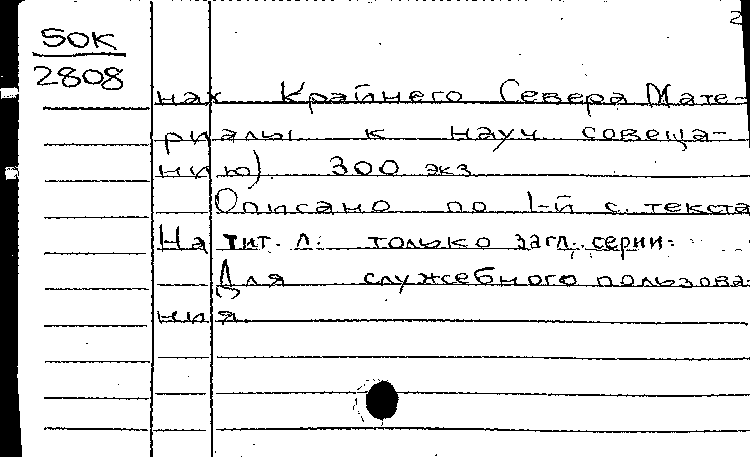 2
50К
2808
нах Крайнего Севера Мате-
риалы к науч совеща-
нию). 300 экз
Описано по 1-й с. текста
На тит. л.: только загл. серии.
Для служебного пользова-
ния.